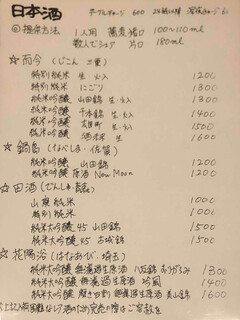 日本酒 テーブルチャージ 600
◎提供方法 1人用 蕎麦猪口 100〜110ml
数人でシェア 片口 180ml
☆ 而今 (じこん 三重)
特別純米 生 火入 1200
特別純米 にごり 1300
純米吟醸 山田錦 生 火入 1400
純米吟醸 千本錦 生 火入 1400
純米吟醸 雄町 生 火入 1500
純米吟醸 酒未来 生 1600
☆ 鍋島 (なべしま・佐賀)
純米吟醸 山田錦 1200
純米吟醸 原酒 New Moon 1200
☆ 田酒 (でんしゅ・青森)
山廃純米 1000
特別純米 1000
純米大吟醸 45 山田錦 1500
純米大吟醸 55 古城錦 1500
☆ 花陽浴 (はなあび・埼玉)
純米大吟醸 無濾過生原酒 八反錦 おりがらみ 1300
純米大吟醸 無濾過生原酒 吟風 1400
純米大吟醸 無濾過生原酒 美山錦 1600